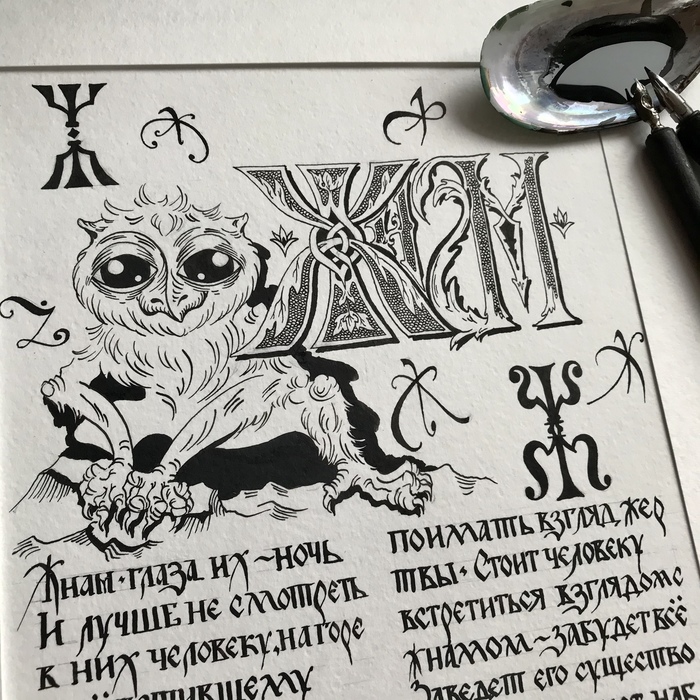 Ж Ж Ж
Ж Ж Ж
Жнам · глаза их ~ ночь
И лучше не смотреть
в них человеку, на горе
поимать взгляд жер
твы · Стоит человеку
встретиться взглядом с
жнамом ~ забудет всё
Заведет его существо